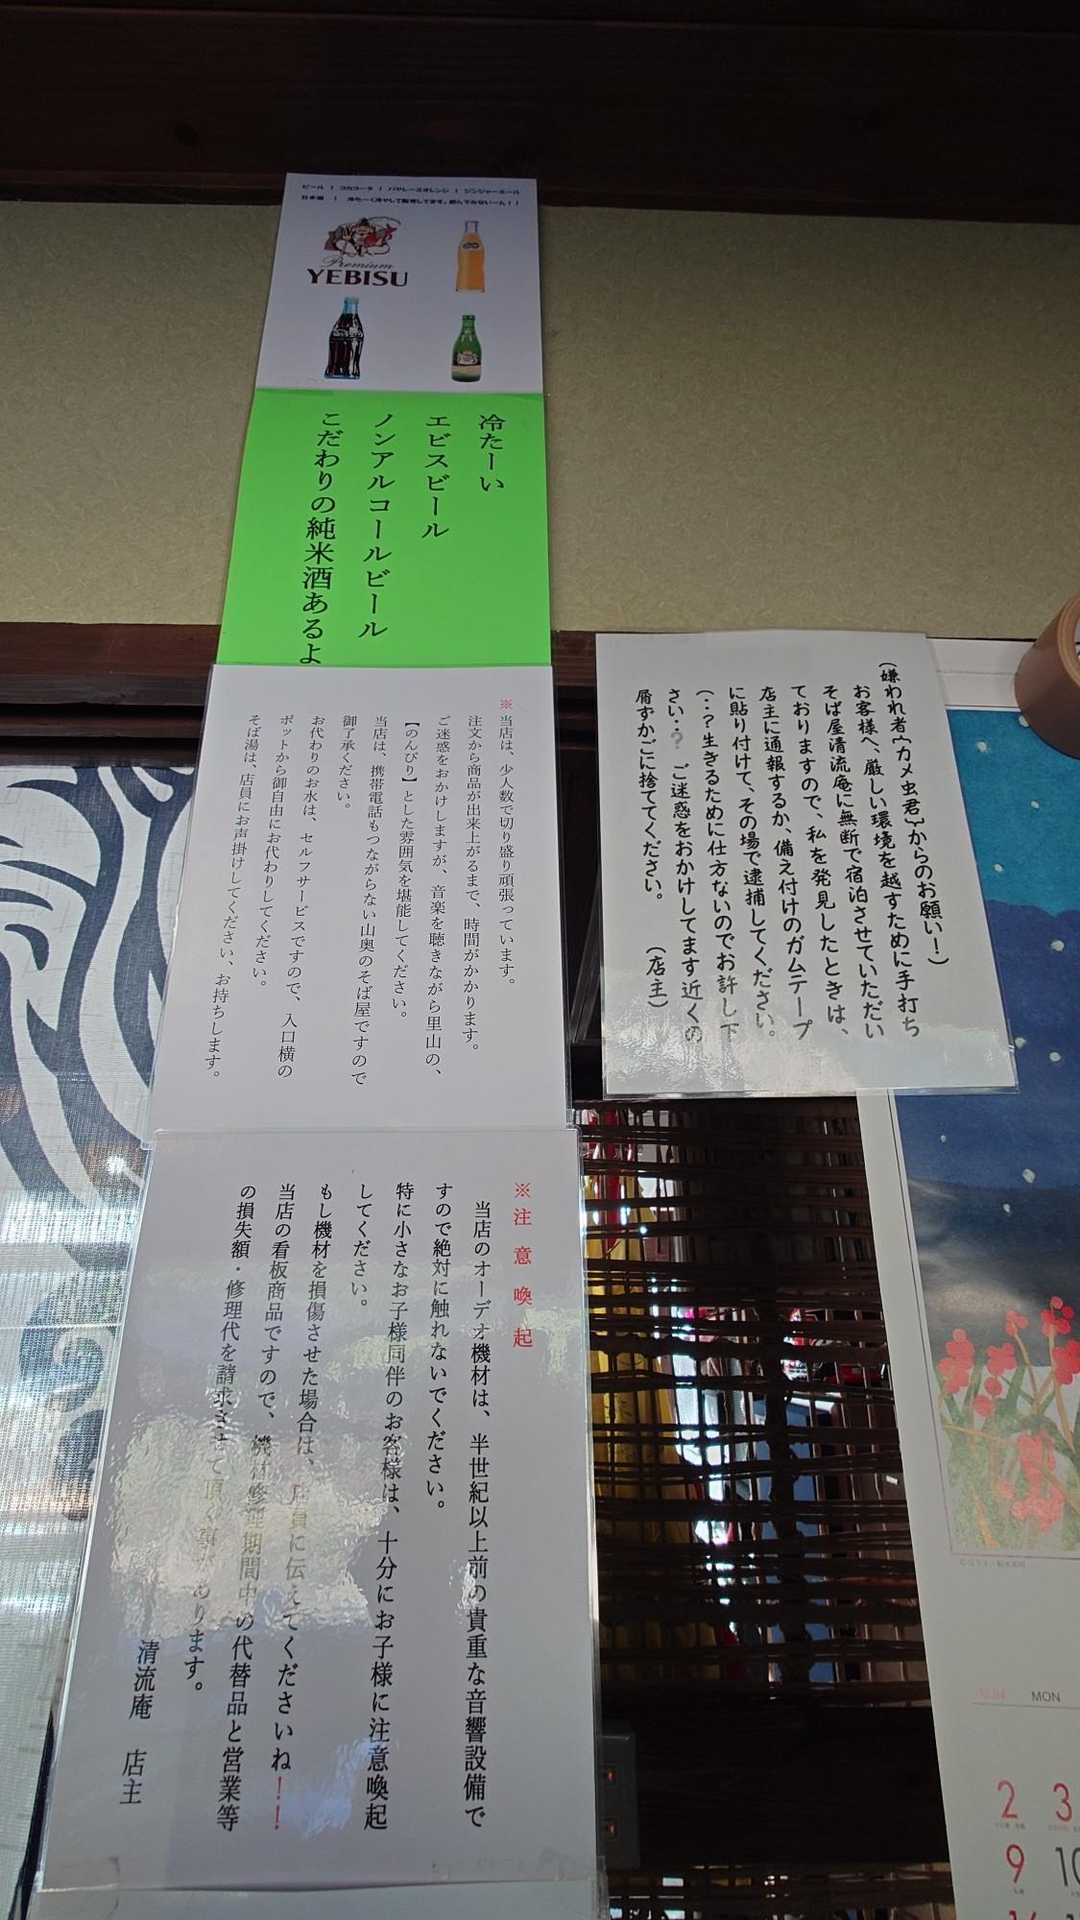 ビール | コカコーラ | バヤリースオレンジ | ジンジャーエール
日本酒 | 冷たーく冷やして販売してます。飲んでみないーん！！
Premium
YEBISU
冷たーい
エビスビール
ノンアルコールビール
こだわりの純米酒あるよ
※当店は、少人数で切り盛り頑張っています。
注文から商品が出来上がるまで、時間がかかります。
ご迷惑をおかけしますが、音楽を聴きながら里山の、
【のんびり】とした雰囲気を堪能してください。
当店は、携帯電話もつながらない山奥のそば屋ですので
御了承ください。
お代わりのお水は、セルフサービスですので、入口横の
ポットから御自由にお代わりしてください。
そば湯は、店員にお声掛けしてください、お持ちします。
(嫌われ者{カメ虫君}からのお願い！)
お客様へ、厳しい環境を越すために手打ち
そば屋清流庵に無断で宿泊させていただい
ておりますので、私を発見したときは、
店主に通報するか、備え付けのガムテープ
に貼り付けて、その場で逮捕してください。
(・・？生きるために仕方ないのでお許し下
さい・・？ ご迷惑をおかけしてます近くの
屑ずかごに捨ててください。 (店主)
※注意喚起
当店のオーデオ機材は、半世紀以上前の貴重な音響設備で
すので絶対に触れないでください。
特に小さなお子様同伴のお客様は、十分にお子様に注意喚起
してください。
もし機材を損傷させた場合は、店員に伝えてくださいね！！
当店の看板商品ですので、機材修理期間中の代替品と営業等
の損失額・修理代を請求させて頂く事があります。
清流庵 店主
MON
2 3
9 10